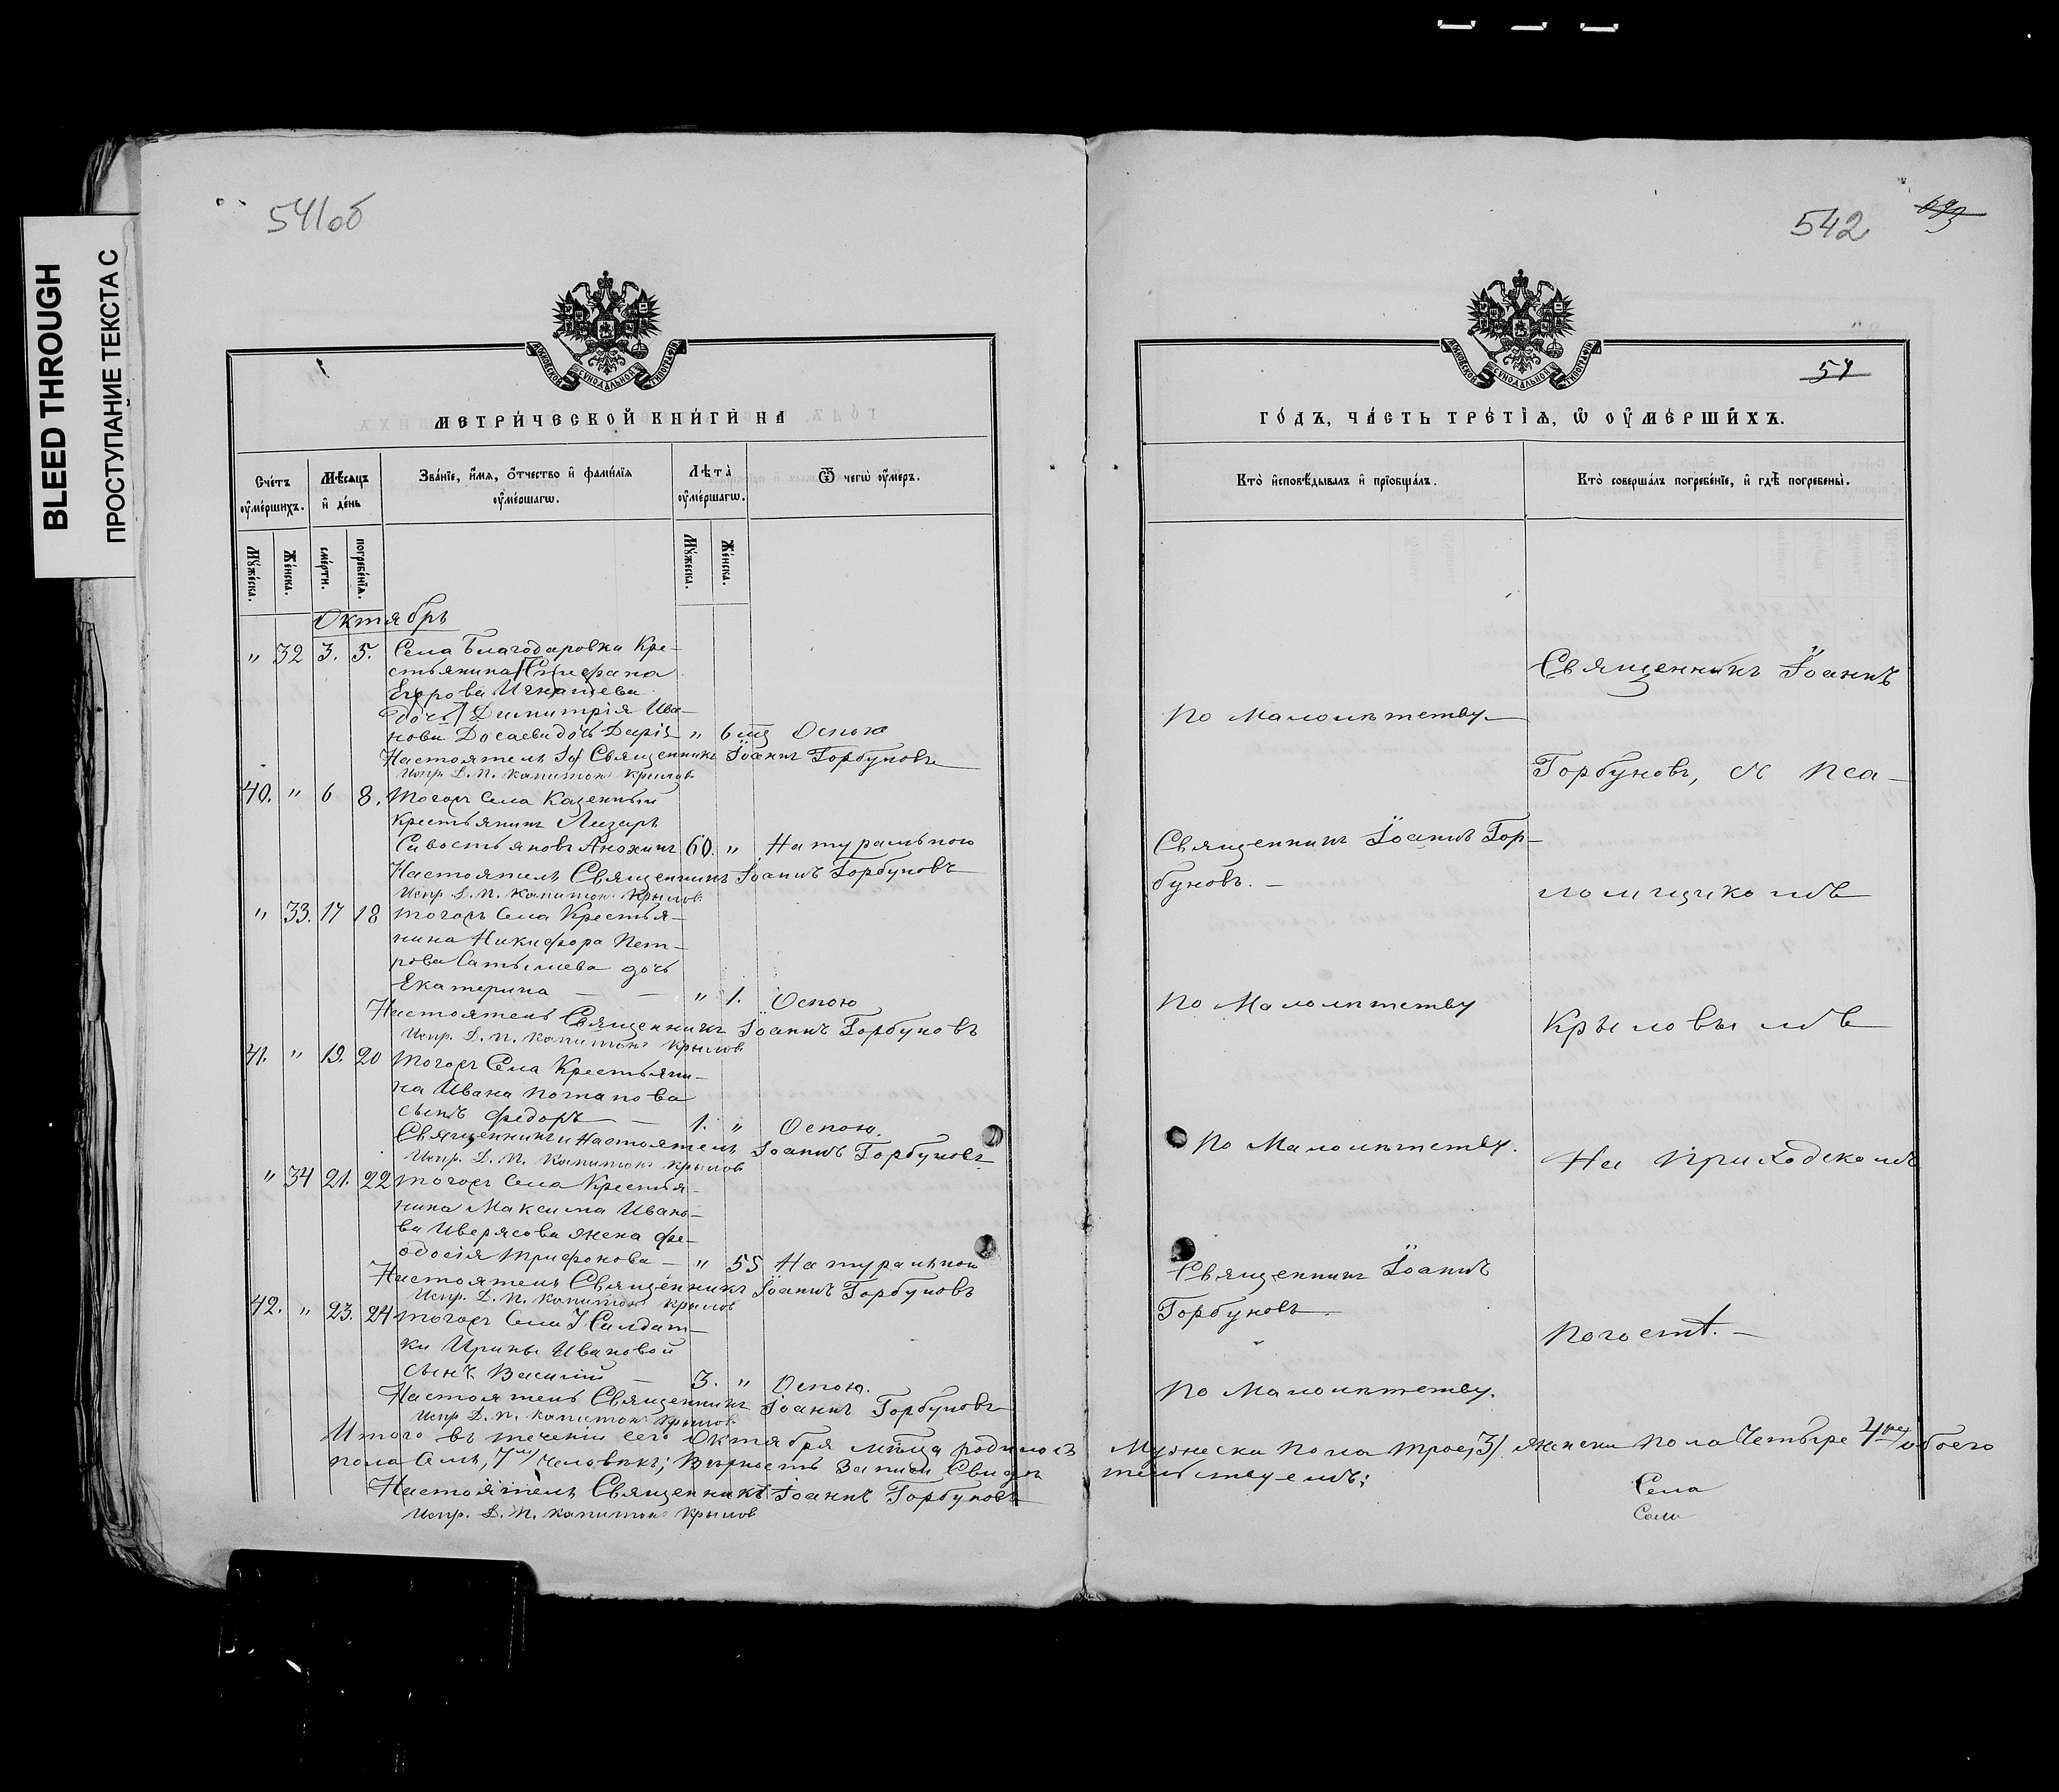 BLEED THROUGH
ПРОСТУПАНИЕ ТЕКСТА С
541об
МОСКОВСКОЙ СѴНОДАЛЬНОЙ ТИПОГРАФІИ
МЕТРИ́ЧЕСКОЙ КНИ́ГИ НА
Сче́тъ оу҆ме́ршихъ.
Мѣ́сяцъ и҆ де́нь
Зва́нїе, и҆́мѧ, ѻ҆́тчество и҆ фами́лїѧ оу҆ме́ршагѡ.
Лѣ́та оу҆ме́ршагѡ.
Ѿ чегѡ̀ оу҆́меръ.
Мꙋ́жеска.
Же́нска.
сме́рти.
погребе́нїѧ.
Мꙋ́жеска.
Же́нска.
Октябрь
" 32 3. 5. Села Благодаровки Кре-
стьянина Стефана
Егорова Игнатьева
дочь Димитрія Ива-
нова дочь Дарія " 6 мц Оспою
Настоятель Священникъ Іоаннъ Горбуновъ
Испр. Д. П. Капитонъ Крыловъ
40. " 6 8. Тогожъ Села Казенный
Крестьянинъ Лазарь
Савостьяновъ Анохинъ 60. " Натуральною
Настоятель Священникъ Іоаннъ Горбуновъ
Испр. Д. П. Капитонъ Крыловъ
" 33. 17 18 Тогожъ Села Крестья-
нина Никифора Пет-
рова дочь
Екатерина — — " 1. Оспою
Настоятель Священникъ Іоаннъ Горбуновъ
Испр. Д. П. Капитонъ Крыловъ
41. " 19. 20 Тогожъ Села Крестьяни-
на Ивана Потапова
сынъ Федоръ — 1. " Оспою.
Священникъ и Настоятель Іоаннъ Горбуновъ
Испр. Д. П. Капитонъ Крыловъ
" 34 21. 22 Тогожъ Села Крестья-
нина Максима Ивано-
ва Иверясова жена Фе-
одосія Трифонова — " 55 Натуральною
Настоятель Священникъ Іоаннъ Горбуновъ
Испр. Д. П. Капитонъ Крыловъ
42. " 23. 24 Тогожъ Села Салдат-
ки Ирины Ивановой
сынъ Василій — 3. " Оспою.
Настоятель Священникъ Іоаннъ Горбуновъ
Испр. Д. П. Капитонъ Крыловъ
Итого въ теченіи сего Октября мѣца родилось
пола Семь, 7 человѣкъ; Вѣрность Записи Свидѣ
Настоятель Священникъ Іоаннъ Горбуновъ
Испр. Д. П. Капитонъ Крылов
542
МОСКОВСКОЙ СѴНОДАЛЬНОЙ ТИПОГРАФІИ
ГО́ДЪ, ЧА́СТЬ ТРЕ́ТЇѦ, Ѡ҆ ОУ҆МЕ́РШИХЪ.
Кто̀ и҆сповѣ́дывалъ и҆ прїѡбща́лъ.
Кто̀ соверша́лъ погребе́нїе, и҆ гдѣ̀ погребены̀.
Священникъ Іоаннъ
По Малолѣтству —
Горбуновъ, съ Пса-
Священникъ Іоаннъ Гор-
буновъ. —
ломщикомъ
По Малолѣтству
Крыловымъ
По Малолѣтству.
На Приходскомъ
Священникъ Іоаннъ
Горбуновъ.
Погостѣ. —
По Малолѣтству.
Мужеска пола трое, 3) женска пола Четыре 4 обоего
тельствуемъ:
Села
Сем